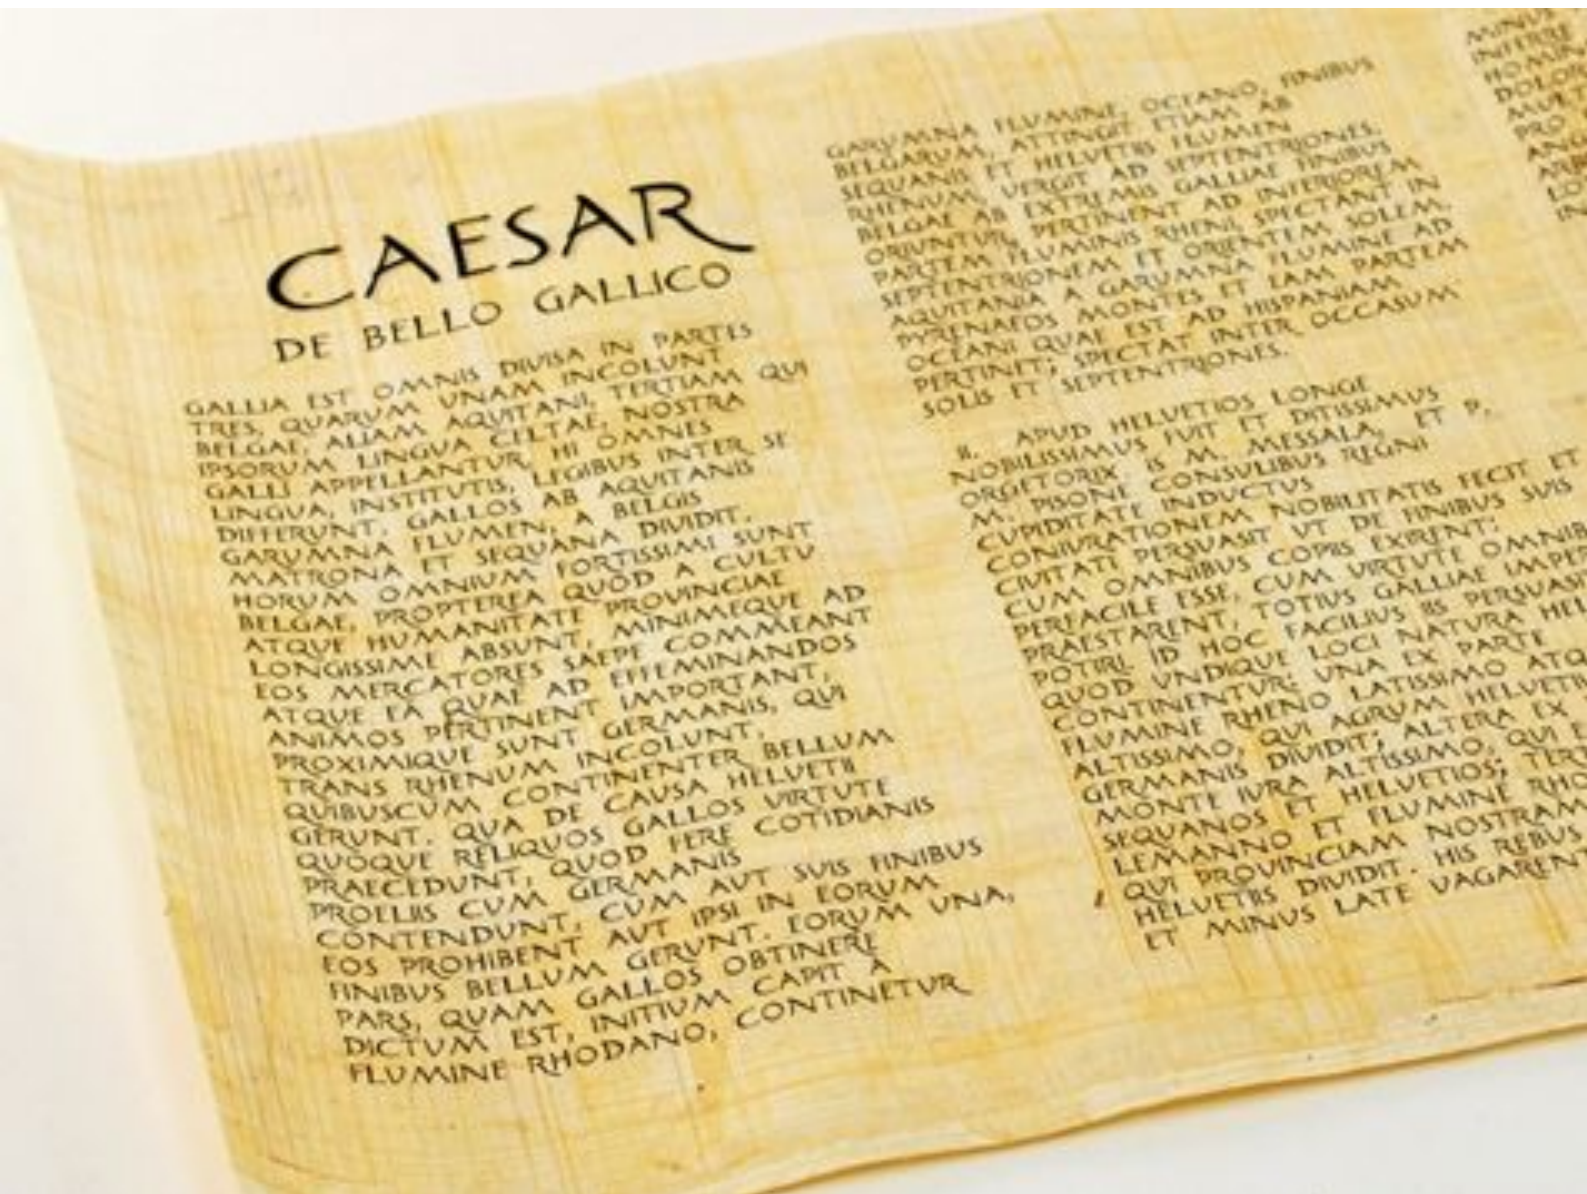 CAESAR
DE BELLO GALLICO
GALLIA EST OMNIS DIVISA IN PARTES
TRES, QUARUM UNAM INCOLUNT
BELGAE, ALIAM AQUITANI, TERTIAM QUI
IPSORUM LINGUA CELTAE, NOSTRA
GALLI APPELLANTUR. HI OMNES
LINGUA, INSTITUTIS, LEGIBUS INTER SE
DIFFERUNT. GALLOS AB AQUITANIS
GARUMNA FLUMEN, A BELGIS
MATRONA ET SEQUANA DIVIDIT.
HORUM OMNIUM FORTISSIMI SUNT
BELGAE, PROPTEREA QUOD A CULTU
ATQUE HUMANITATE PROVINCIAE
LONGISSIME ABSUNT, MINIMEQUE AD
EOS MERCATORES SAEPE COMMEANT
ATQUE EA QUAE AD EFFEMINANDOS
ANIMOS PERTINENT IMPORTANT,
PROXIMIQUE SUNT GERMANIS, QUI
TRANS RHENUM INCOLUNT,
QUIBUSCUM CONTINENTER BELLUM
GERUNT. QUA DE CAUSA HELVETII
QUOQUE RELIQUOS GALLOS VIRTUTE
PRAECEDUNT, QUOD FERE COTIDIANIS
PROELIIS CUM GERMANIS
CONTENDUNT, CUM AUT SUIS FINIBUS
EOS PROHIBENT AUT IPSI IN EORUM
FINIBUS BELLUM GERUNT. EORUM UNA,
PARS, QUAM GALLOS OBTINERE
DICTUM EST, INITIUM CAPIT A
FLUMINE RHODANO, CONTINETUR
GARUMNA FLUMINE, OCEANO, FINIBUS
BELGARUM, ATTINGIT ETIAM AB
SEQUANIS ET HELVETIIS FLUMEN
RHENUM, VERGIT AD SEPTENTRIONES.
BELGAE AB EXTREMIS GALLIAE FINIBUS
ORIUNTUR, PERTINENT AD INFERIOREM
PARTEM FLUMINIS RHENI, SPECTANT IN
SEPTENTRIONEM ET ORIENTEM SOLEM.
AQUITANIA A GARUMNA FLUMINE AD
PYRENAEOS MONTES ET EAM PARTEM
OCEANI QUAE EST AD HISPANIAM
PERTINET; SPECTAT INTER OCCASUM
SOLIS ET SEPTENTRIONES.
II. APUD HELVETIOS LONGE
NOBILISSIMUS FUIT ET DITISSIMUS
ORGETORIX. IS M. MESSALA, ET P.
M. PISONE CONSULIBUS REGNI
CUPIDITATE INDUCTUS
CONIURATIONEM NOBILITATIS FECIT ET
CIVITATI PERSUASIT UT DE FINIBUS SUIS
CUM OMNIBUS COPIIS EXIRENT:
PERFACILE ESSE, CUM VIRTUTE OMNIB
PRAESTARENT, TOTIUS GALLIAE IMPER
POTIRI. ID HOC FACILIUS IIS PERSUASI
QUOD UNDIQUE LOCI NATURA HEL
CONTINENTUR: UNA EX PARTE
FLUMINE RHENO LATISSIMO ATQ
ALTISSIMO, QUI AGRUM HELVETII
GERMANIS DIVIDIT; ALTERA EX
MONTE IURA ALTISSIMO, QUI E
SEQUANOS ET HELVETIOS; TERT
LEMANNO ET FLUMINE RHO
QUI PROVINCIAM NOSTRAM
HELVETIIS DIVIDIT. HIS REBUS
ET MINUS LATE VAGARENT
MINUS
INFERRE
HOMIN
DOLOR
MULT
PRO